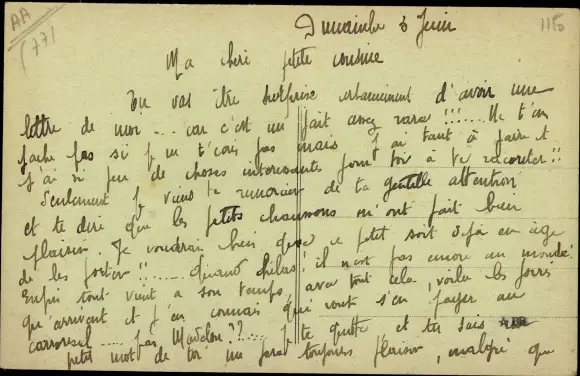 AA
(77)
1150
Dimanche 3 Juin
Ma chéri petite cousine
Tu vas être surprise d'avoir une
lettre de moi ... car c'est un fait assez rare !!! .... Ne t'en
fache pas si je ne t'écris pas mais j'ai tant à faire et
j'ai si peu de choses interessantes pour toi à te raconter !!
Seulement je viens te remercier de ta gentille attention
et te dire que les petits chaussons m'ont fait bien
plaisir. Je voudrais bien que ce petit soit déjà en age
de les porter !! ..... Quand hélas ! il n'est pas encore au monde !
Enfin tout vient a son temps, avec tout cela, voila les jours
qu'arrivent et j'en connais qui vont s'en payer au
carrousel .... pas Madelon ?? .... Je te quitte, et tu sais
petit mot de toi me fera toujours plaisir, malgré que